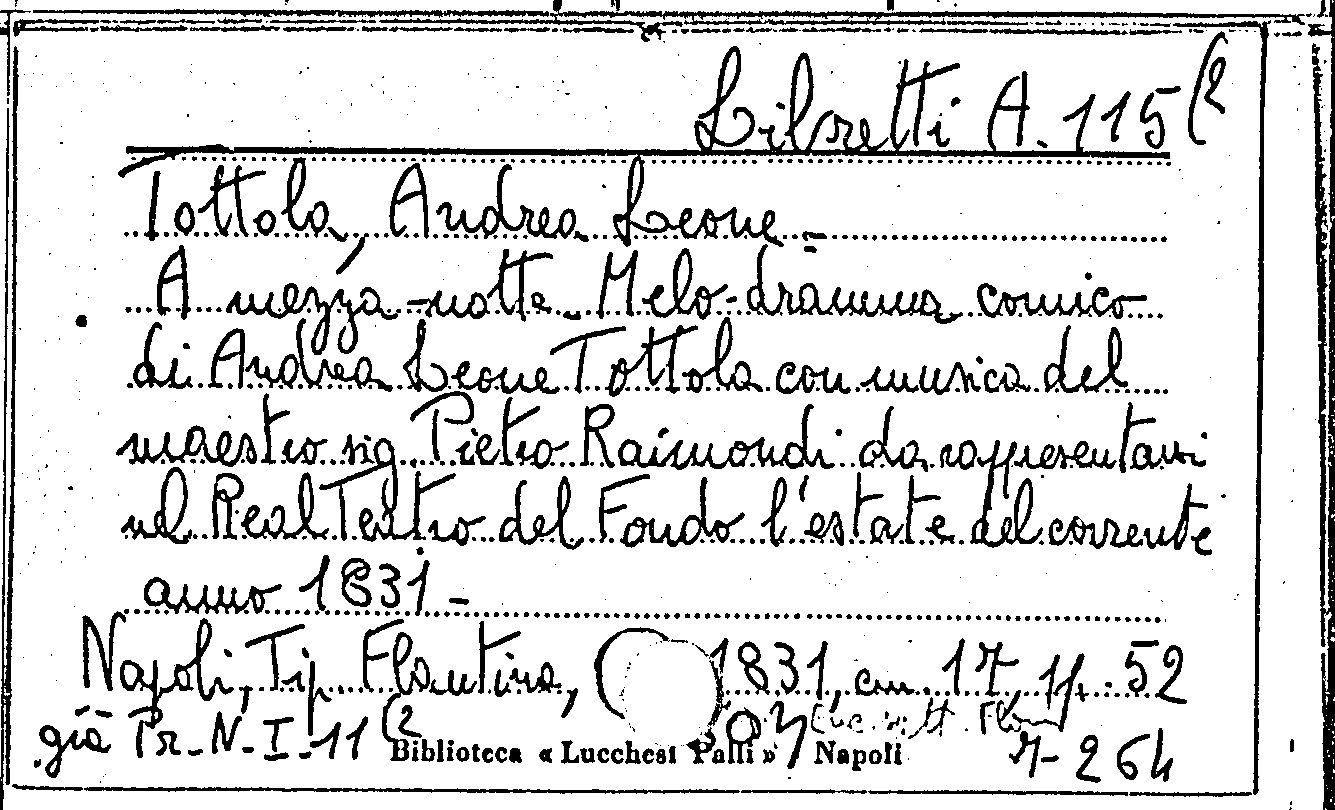 Libretti A. 115(2
Tottola, Andrea Leone. -
A mezza-notte. Melo-dramma comico
di Andrea Leone Tottola con musica del
maestro sig. Pietro Raimondi da rappresentarsi
nel Real Teatro del Fondo l'estate del corrente
anno 1831 -
Napoli, Tip. Flautina, 1831, cm. 17, pp. 52
già Pr-N-I-11(2
Biblioteca « Lucchesi Palli » Napoli
7-264